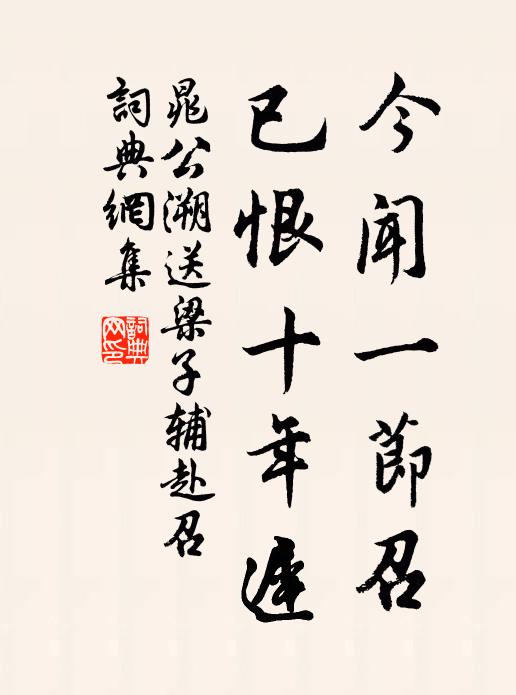 今聞一節召
已恨十年遲
晁公溯送梁子輔赴召
詞典網集
詞典網印